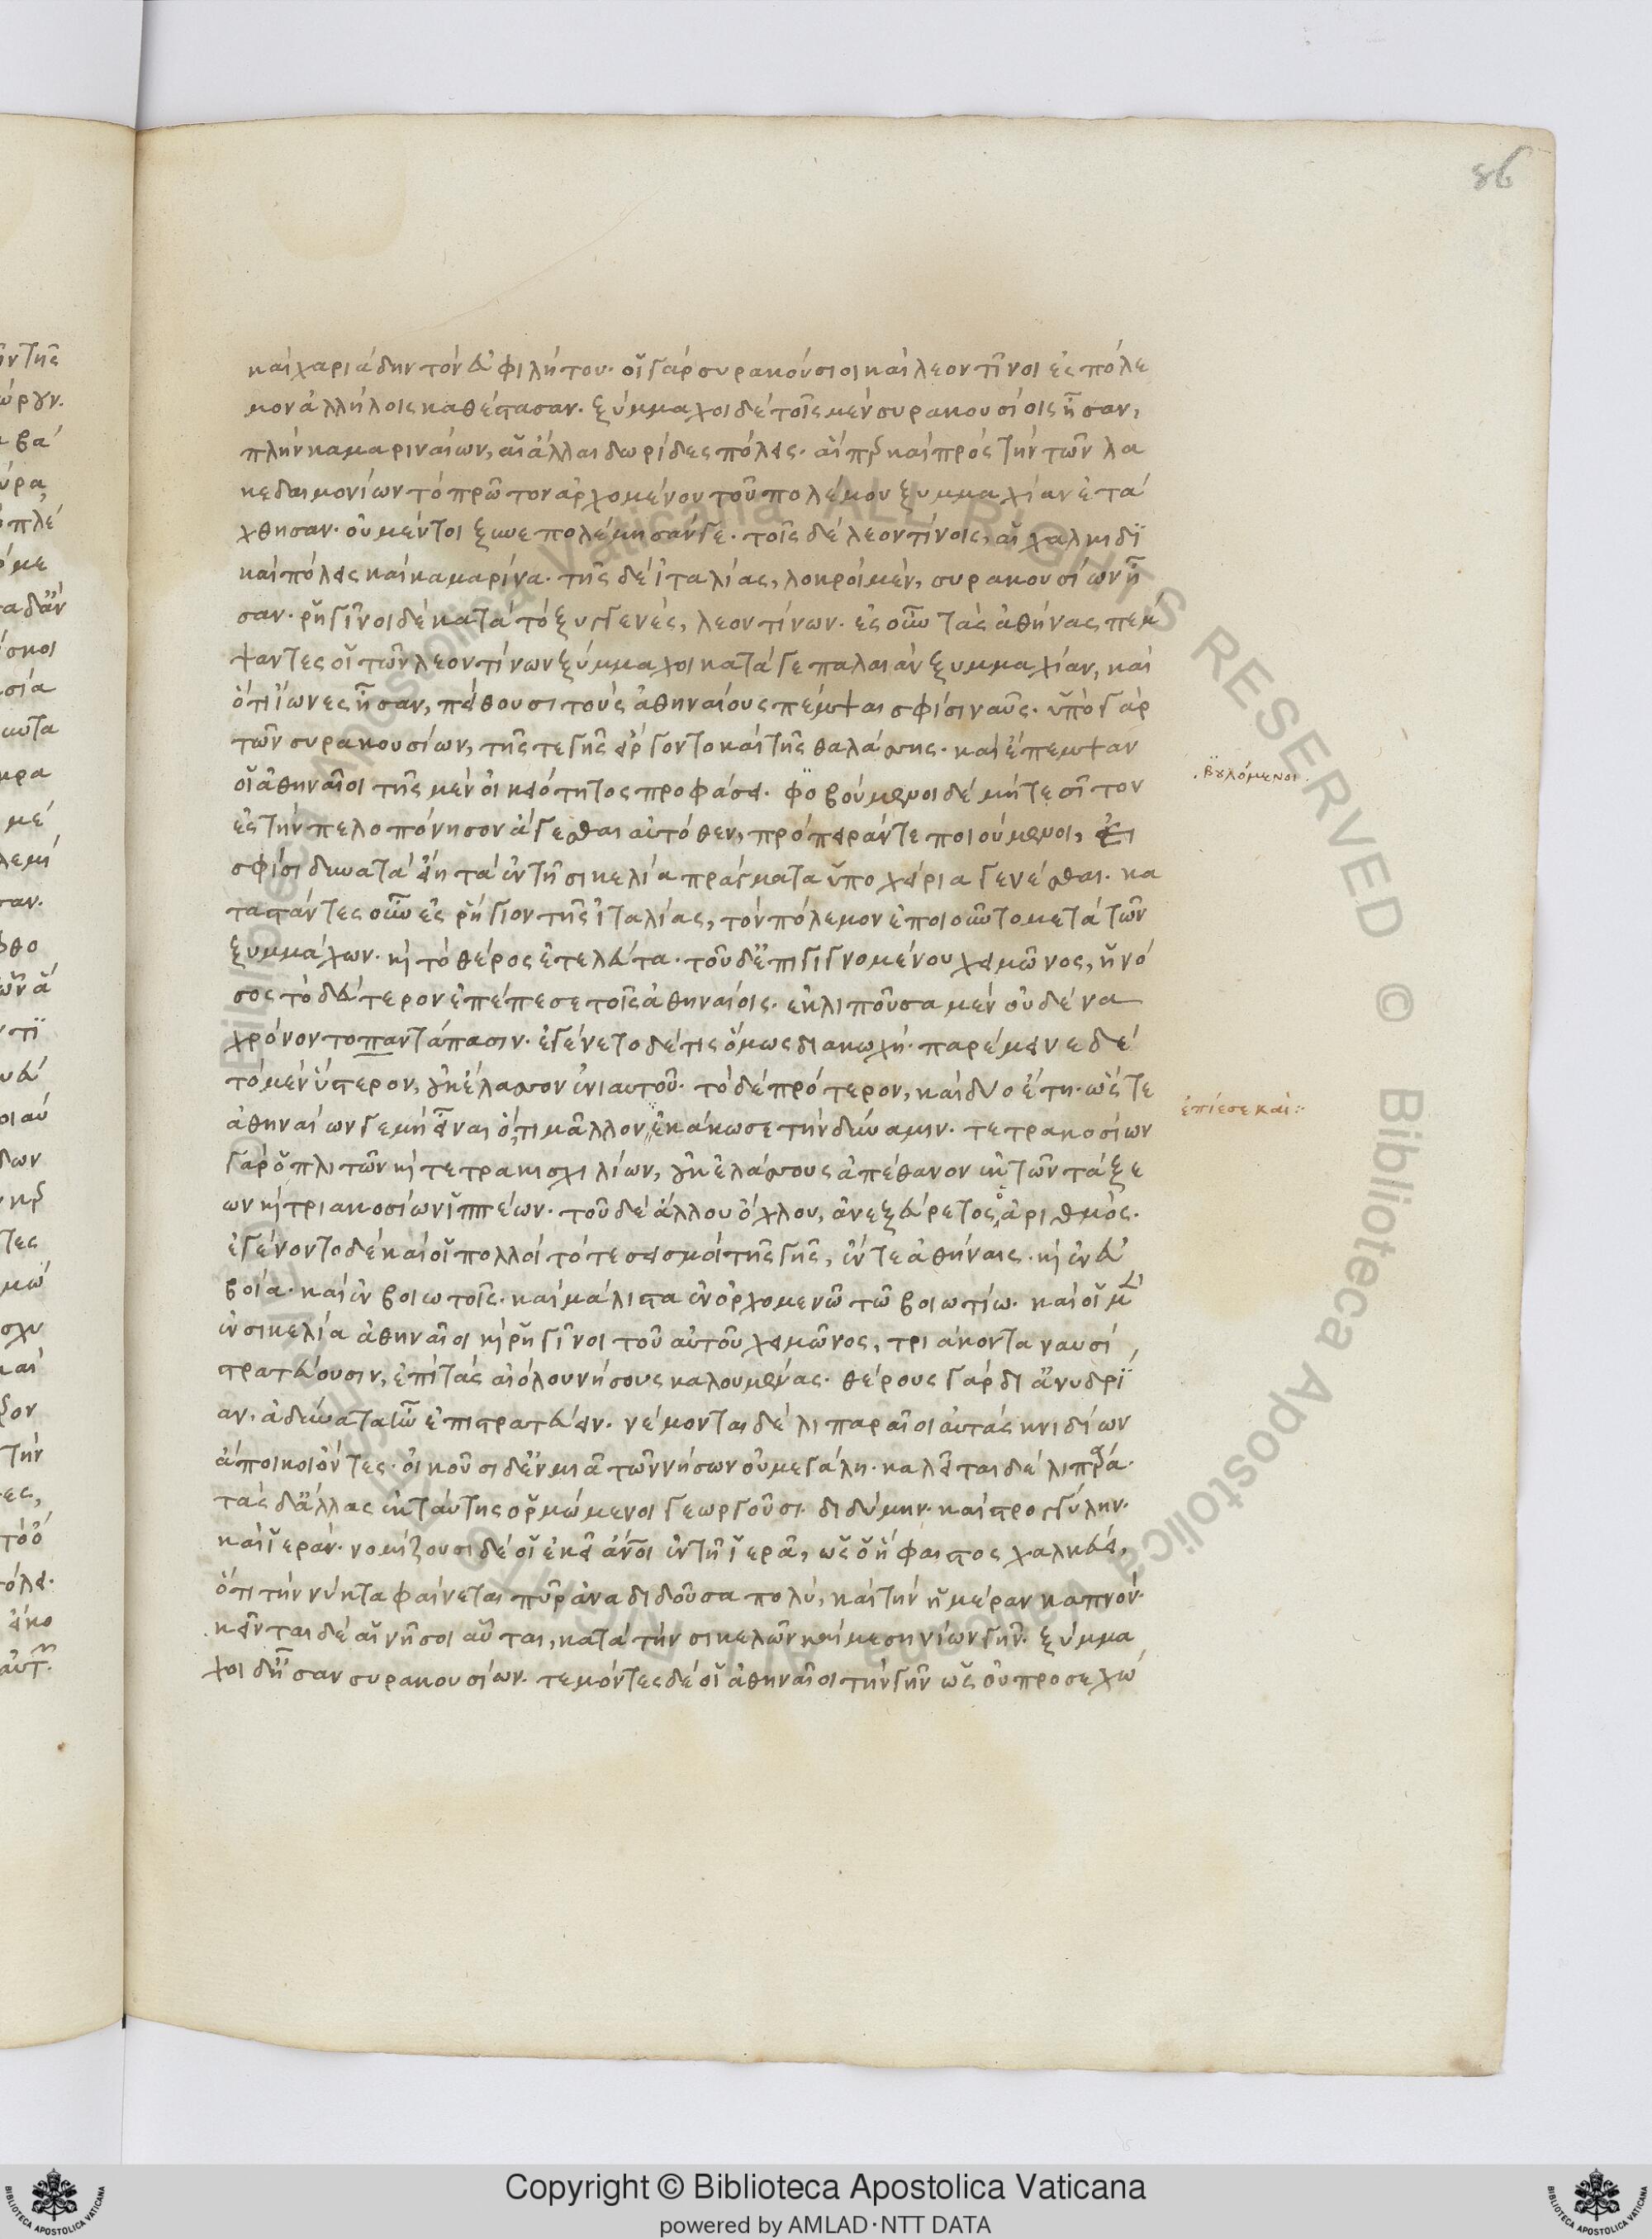 86
καὶ χαριάδην τὸν εὐφιλήτου· οἱ γὰρ συρακούσιοι καὶ λεοντῖνοι ἐς πόλε
μον ἀλλήλοις καθέστασαν· ξύμμαχοι δὲ τοῖς μὲν συρακουσίοις ἦσαν,
πλὴν καμαριναίων, αἱ ἄλλαι δωρίδες πόλεις· αἵπερ καὶ πρὸς τὴν τῶν λα
κεδαιμονίων τὸ πρῶτον ἀρχομένου τοῦ πολέμου ξυμμαχίαν ἐτά
χθησαν· οὐ μέντοι ξυνεπολέμησάν γε· τοῖς δὲ λεοντίνοις, αἱ χαλκιδι
καὶ πόλεις καὶ καμαρίνα· τῆς δὲ ἰταλίας, λοκροὶ μὲν, συρακουσίων ἦ
σαν· ῥηγῖνοι δὲ κατὰ τὸ ξυγγενὲς, λεοντίνων· ἐς οὖν τὰς ἀθήνας πέμ
ψαντες οἱ τῶν λεοντίνων ξύμμαχοι κατά γε παλαιὰν ξυμμαχίαν, καὶ
ὅτι ἴωνες ἦσαν, πείθουσι τοὺς ἀθηναίους πέμψαι σφίσι ναῦς· ὑπὸ γὰρ
τῶν συρακουσίων, τῆς τε γῆς εἴργοντο καὶ τῆς θαλάσσης· καὶ ἔπεμψαν
οἱ ἀθηναῖοι τῆς μὲν οἰκειότητος προφάσει· φοβούμενοι δὲ μήτε σῖτον
ἐς τὴν πελοπόνησον ἄγεσθαι αὐτόθεν, πρόπειράν τε ποιούμενοι, εἰ
σφίσι δυνατὰ εἴη τὰ ἐν τῆ σικελία πράγματα ὑποχείρια γενέσθαι· κα
ταστάντες οὖν ἐς ῥήγιον τῆς ἰταλίας, τὸν πόλεμον ἐποιοῦντο μετὰ τῶν
ξυμμάχων· κὶ τὸ θέρος ἐτελεύτα· τοῦ δ' ἐπιγιγνομένου χειμῶνος, ἡ νό
σος τὸ δεύτερον ἐπέπεσε τοῖς ἀθηναίοις· ἐκλιποῦσα μὲν οὐδένα
χρόνον τοπαντάπασιν· ἐγένετο δέ τις ὅμως διακωχή· παρέμεινε δὲ
τὸ μὲν ὕστερον, οὐκ ἔλασσον ἐνιαυτοῦ· τὸ δὲ πρότερον, καὶ δύο ἔτη· ὥστε
ἀθηναίων γε μὴ εἶναι ὅτι μᾶλλον ἐκάκωσε τὴν δύναμιν· τετρακοσίων
γὰρ ὁπλιτῶν κὶ τετρακισχιλίων, οὐκ ἐλάσσους ἀπέθανον ἐκ τῶν τάξε
ων κὶ τριακοσίων ἱππέων· τοῦ δὲ ἄλλου ὄχλου, ἀνεξεύρετος ὁ ἀριθμὸς·
ἐγένοντο δὲ καὶ οἱ πολλοὶ τότε σεισμοὶ τῆς γῆς, ἔν τε ἀθήναις· κὶ ἐν εὐ
βοία· καὶ ἐν βοιωτοῖς· καὶ μάλιστα ἐν ὀρχομενῶ τῶ βοιωτίω· καὶ οἱ μὲν
ἐν σικελία ἀθηναῖοι κὶ ῥηγῖνοι τοῦ αὐτοῦ χειμῶνος, τριάκοντα ναυσὶ
στρατεύουσιν, ἐπὶ τὰς αἰόλου νήσους καλουμένας· θέρους γὰρ δι' ἀνυδρί
αν· ἀδύνατα ἦν ἐπιστρατεύειν· νέμονται δὲ λιπαραῖοι αὐτὰς κνιδίων
ἄποικοι ὄντες· οἰκοῦσι δ' ἐν μιᾶ τῶν νήσων οὐ μεγάλη· καλεῖται δὲ λιπαρά·
τὰς δ' ἄλλας ἐκ ταύτης ὁρμώμενοι γεωργοῦσι· διδύμην· καὶ στρογγύλην·
καὶ ἱεράν· νομίζουσι δὲ οἱ ἐκεῖ ἄνοι ἐν τῆ ἱερᾶ, ὡς ὁ ἥφαιστος χαλκεύει,
ὅτι τὴν νύκτα φαίνεται πῦρ ἀναδιδοῦσα πολύ, καὶ τὴν ἡμέραν καπνόν·
κεῖνται δὲ αἱ νῆσοι αὗται, κατὰ τὴν σικελῶν καὶ μεσηνίων γῆν· ξύμμα
χοι δ' ἦσαν συρακουσίων· τεμόντες δὲ οἱ ἀθηναῖοι τὴν γῆν ὡς οὐ προσεχώ
βȣλόμενοι
ἐπίεσε καὶ:
Copyright © Biblioteca Apostolica Vaticana
powered by AMLAD·NTT DATA